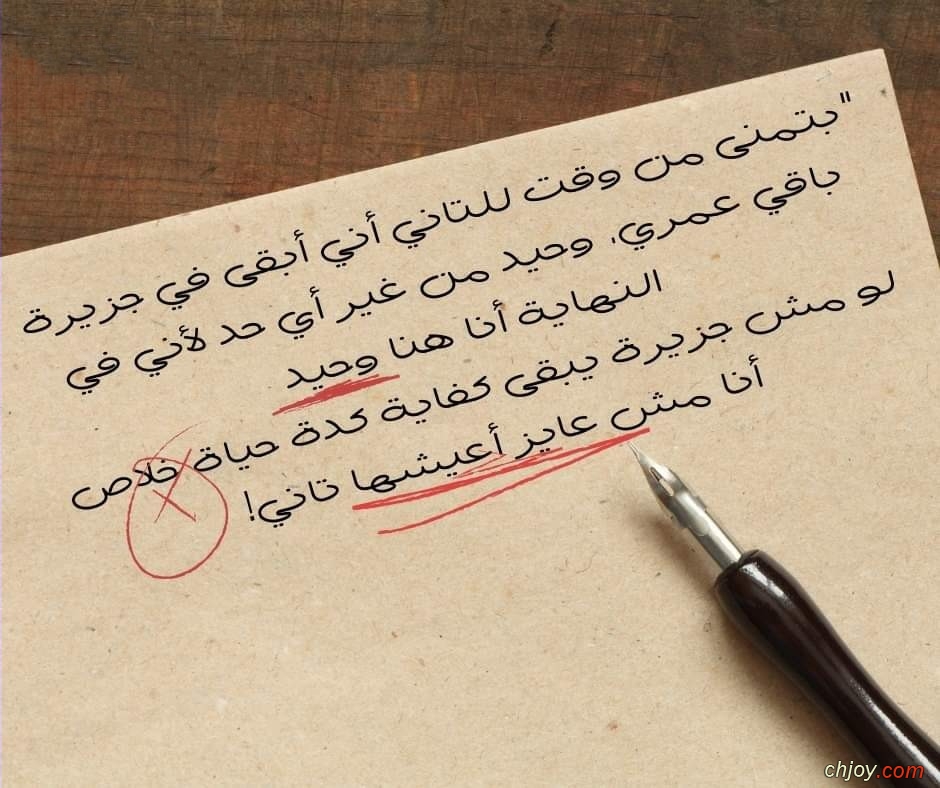 "بتمنى من وقت للتاني أني أبقى في جزيرة
باقي عمري، وحيد من غير أي حد لأني في
النهاية أنا هنا وحيد
لو مش جزيرة يبقى كفاية كدة حياة خلاص
أنا مش عايز أعيشها تاني!
chjoy.com